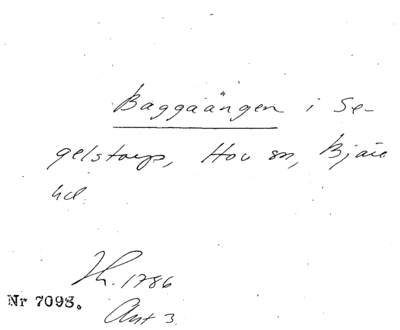 Baggaängen i Se-
gelstorp, Hov sn, Bjäre
hd.
Th. 1786
Akt 3.
Nr 7098.